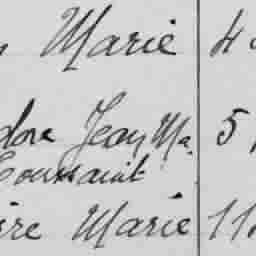 Marie 4
dore Jean Ma. 5
Toussaint
ère Marie 11